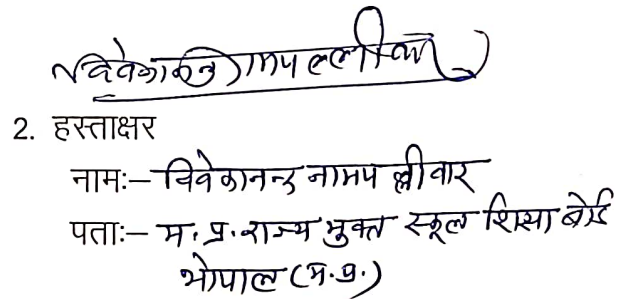 विवेकानन्द नामपल्लीवार
2. हस्ताक्षर
नामः– विवेकानन्द नामपल्लीवार
पताः– म. प्र. राज्य मुक्त स्कूल शिक्षा बोर्ड
भोपाल (म.प्र.)